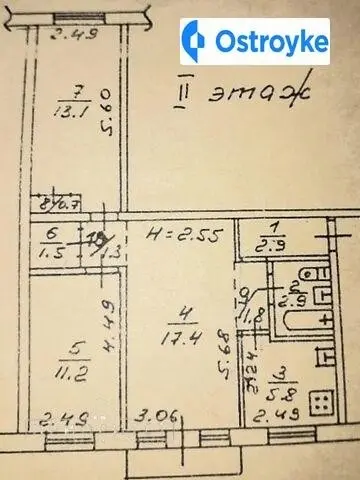 Ostroyke
2.49
II этаж
7
13.1
5.60
8/0.7
6
1.5
1.3
H=2.55
1
2.9
2
2.9
9
1.8
4
17.4
4.49
5
11.2
5.68
2.24
3
5.8
2.49
3.06
2.49